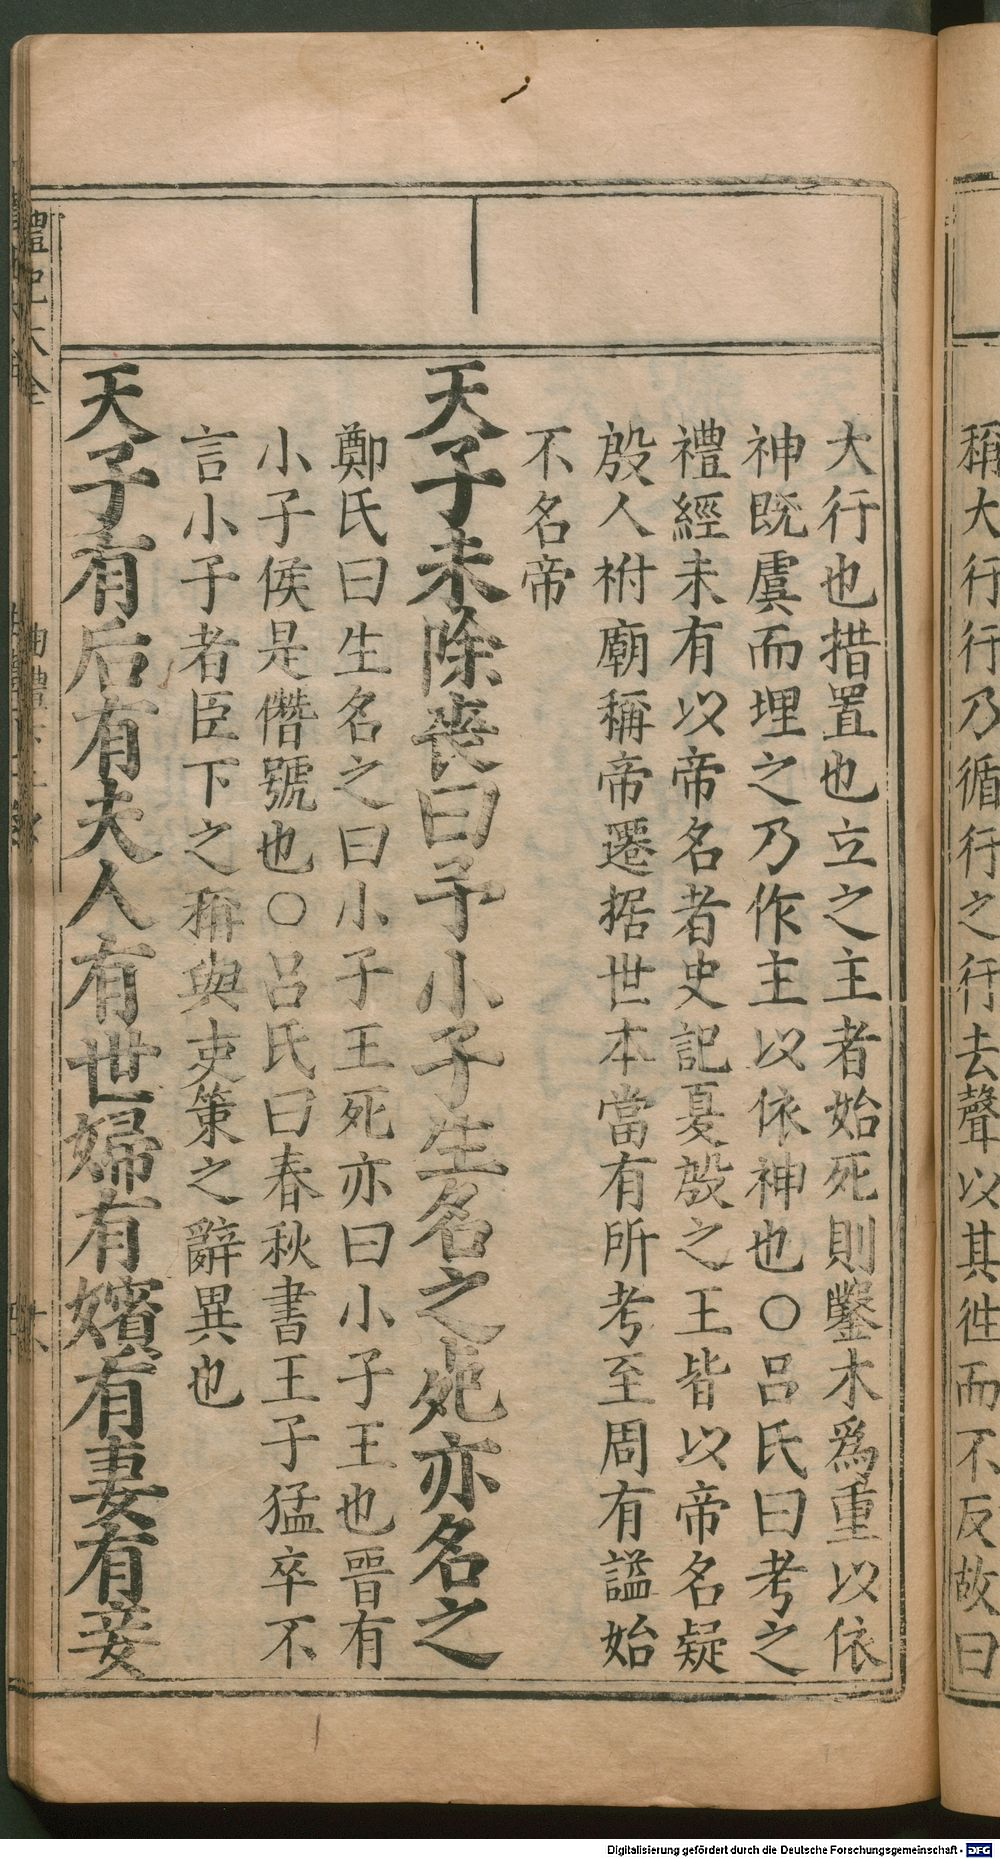 稱大行行乃循行之行去聲以其徃而不反故曰
大行也措置也立之主者始死則鑿木爲重以依
神既虞而埋之乃作主以依神也○呂氏曰考之
禮經未有以帝名者史記夏殷之王皆以帝名疑
殷人祔廟稱帝遷据世本當有所考至周有謚始
不名帝
天子未除喪曰予小子生名之死亦名之
鄭氏曰生名之曰小子王死亦曰小子王也晉有
小子侯是僭號也○呂氏曰春秋書王子猛卒不
言小子者臣下之稱與史策之辭異也
天子有后有夫人有世婦有嬪有妻有妾
禮記大全
Digitalisierung gefördert durch die Deutsche Forschungsgemeinschaft - DFG